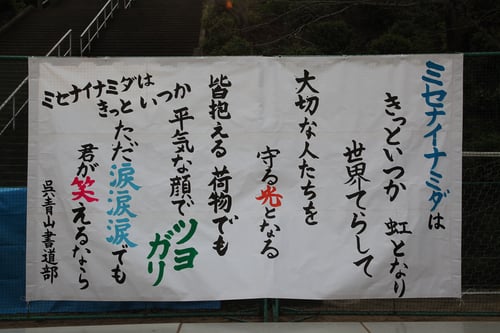 ミセナイナミダは
きっといつか 虹となり
世界てらして
大切な人たちを
守る光となる
皆抱える 荷物でも
平気な顔で ツヨガリ
ただ涙涙涙でも
君が笑えるなら
ミセナイナミダは いつか
きっと
呉青山書道部